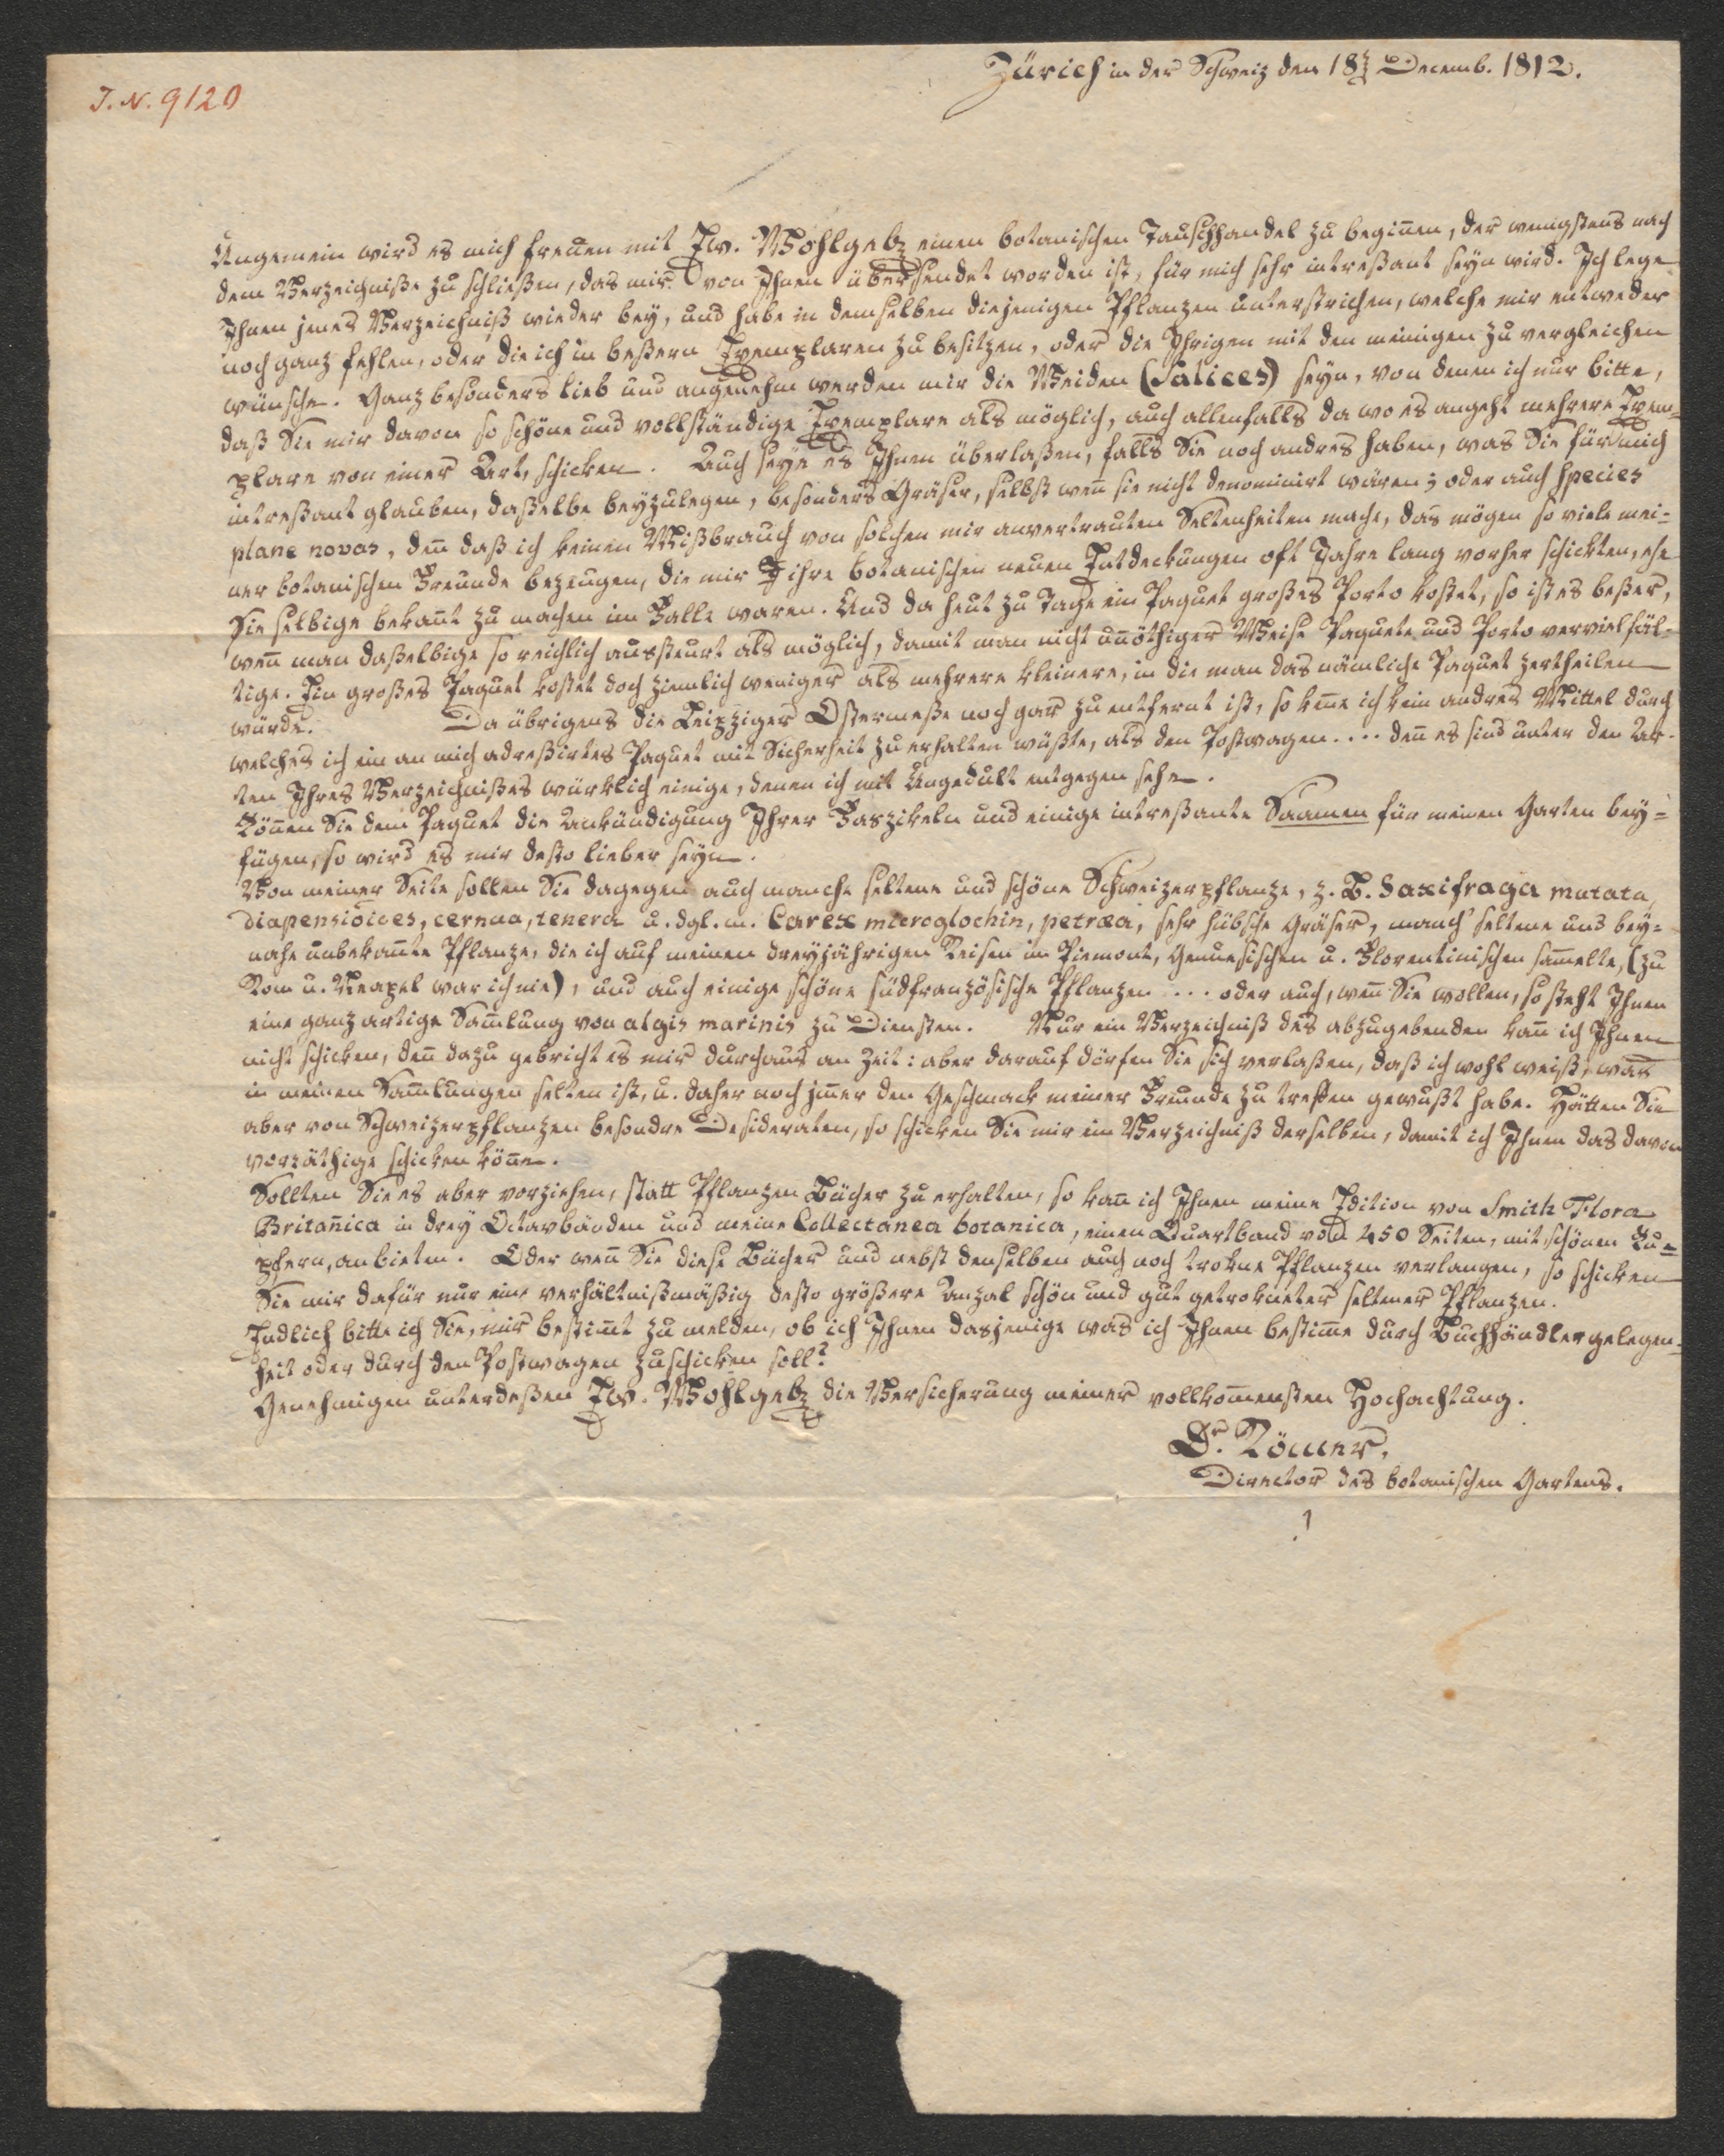 Zürich in der Schweiz den 18 Decemb. 1812.
J. N. 9120
Ungemein wird es mich freuen mit Ew. Wohlgeb. einen botanischen Tauschhandel zu begiñen, der wenigstens nach
dem Verzeichniße zu schließen, das mir von Ihnen übersendet worden ist, für mich sehr intreßant seyn wird. Ich lege
Ihnen jenes Verzeichniß wieder bey, und habe in demselben diejenigen Pflanzen unterstrichen, welche mir entweder
noch ganz fehlen, oder die ich in beßern Exemplaren zu besitzen, oder die Ihrigen mit den meinigen zu vergleichen
wünsche. Ganz besonders lieb und angenehm werden mir die Weiden (Salices) seyn, von denen ich nur bitte,
daß Sie mir davon so schöne und vollständige Exemplare als möglich, auch allenfalls da wo es angeht mehrere Exem-
plare von einer Art, schicken. Auch seye es Ihnen überlaßen, falls Sie noch andres haben, was Sie für mich
intreßant glauben, daßelbe beyzulegen, besonders Gräser, selbst weñ sie nicht denominirt wären; oder auch species
plane novas, deñ daß ich keinen Mißbrauch von solchen mir anvertrauten Seltenheiten mache, das mögen so viele mei-
ner botanischen Freunde bezeugen, die mir ihre botanischen neuen Entdeckungen oft Jahre lang vorher schickten, ehe
Sie selbige bekañt zu machen im Falle waren. Und da heut zu Tage ein Paquet großes Porto kostet, so ist es beßer,
weñ man daßelbige so reichlich aussteurt als möglich, damit man nicht uñöthiger Weise Paquete und Porto vervielfäl-
tige. Ein großes Paquet kostet doch ziemlich weniger als mehrere kleinere, in die man das nämliche Paquet zertheilen
würde. Da übrigens die Leipziger Ostermeße noch gar zu entfernt ist, so keñe ich kein andres Mittel durch
welches ich ein an mich adreßirtes Paquet mit Sicherheit zu erhalten wüßte, als den Postwagen .... deñ es sind unter den Ar-
ten Ihres Verzeichnißes würklich einige, denen ich mit Ungedult entgegen sehe.
Köñen Sie dem Paquet die Ankündigung Ihrer Faszikeln und einige intreßante Saamen für meinen Garten bey-
fügen, so wird es mir desto lieber seyn.
Von meiner Seite sollen Sie dagegen auch manche seltene und schöne Schweizerpflanze, z. B. Saxifraga mutata,
diapensioices, cernua, tenera u. dgl. m. Carex microglochin, petræa, sehr hübsche Gräser, manch' seltene und bey-
nahe unbekañte Pflanze, die ich auf meinen dreyjährigen Reisen im Piemont, Genuesischen u. Florentinischen sam̃elte, (zu
Rom u. Neapel war ich nie), und auch einige schöne südfranzösische Pflanzen ... oder auch, weñ Sie wollen, so steht Ihnen
eine ganz artige Sam̃lung von algis marinis zu Diensten. Nur ein Verzeichniß des abzugebenden kañ ich Ihnen
nicht schicken, deñ dazu gebricht es mir durchaus an Zeit: aber darauf dörfen Sie sich verlaßen, daß ich wohl weiß, was
in meinen Sam̃lungen selten ist, u. daher noch im̃er den Geschmack meiner Freunde zu treffen gewußt habe. Hätten Sie
aber von Schweizerpflanzen besondre Desideraten, so schicken Sie mir ein Verzeichniß derselben, damit ich Ihnen das davon
vorräthige schicken köñe.
Sollten Sie es aber vorziehen, statt Pflanzen Bücher zu erhalten, so kañ ich Ihnen meine Edition von Smith Flora
Britañica in drey Octavbänden und meine Collectanea botanica, einen Quartband von 450 Seiten, mit schönen Ku-
pfern, anbieten. Oder weñ Sie diese Bücher und nebst denselben auch noch trokne Pflanzen verlangen, so schicken
Sie mir dafür nur eine verhältnißmäßig desto größere Anzal schön und gut getrokneter seltener Pflanzen.
Endlich bitte ich Sie, mir bestim̃t zu melden, ob ich Ihnen dasjenige was ich Ihnen bestim̃e durch Buchhändlergelegen-
heit oder durch den Postwagen zuschicken soll?
Genehmigen unterdeßen Ew. Wohlgeb. die Versicherung meiner vollkom̃ensten Hochachtung.
Dr. Römer,
Director des botanischen Gartens.
1